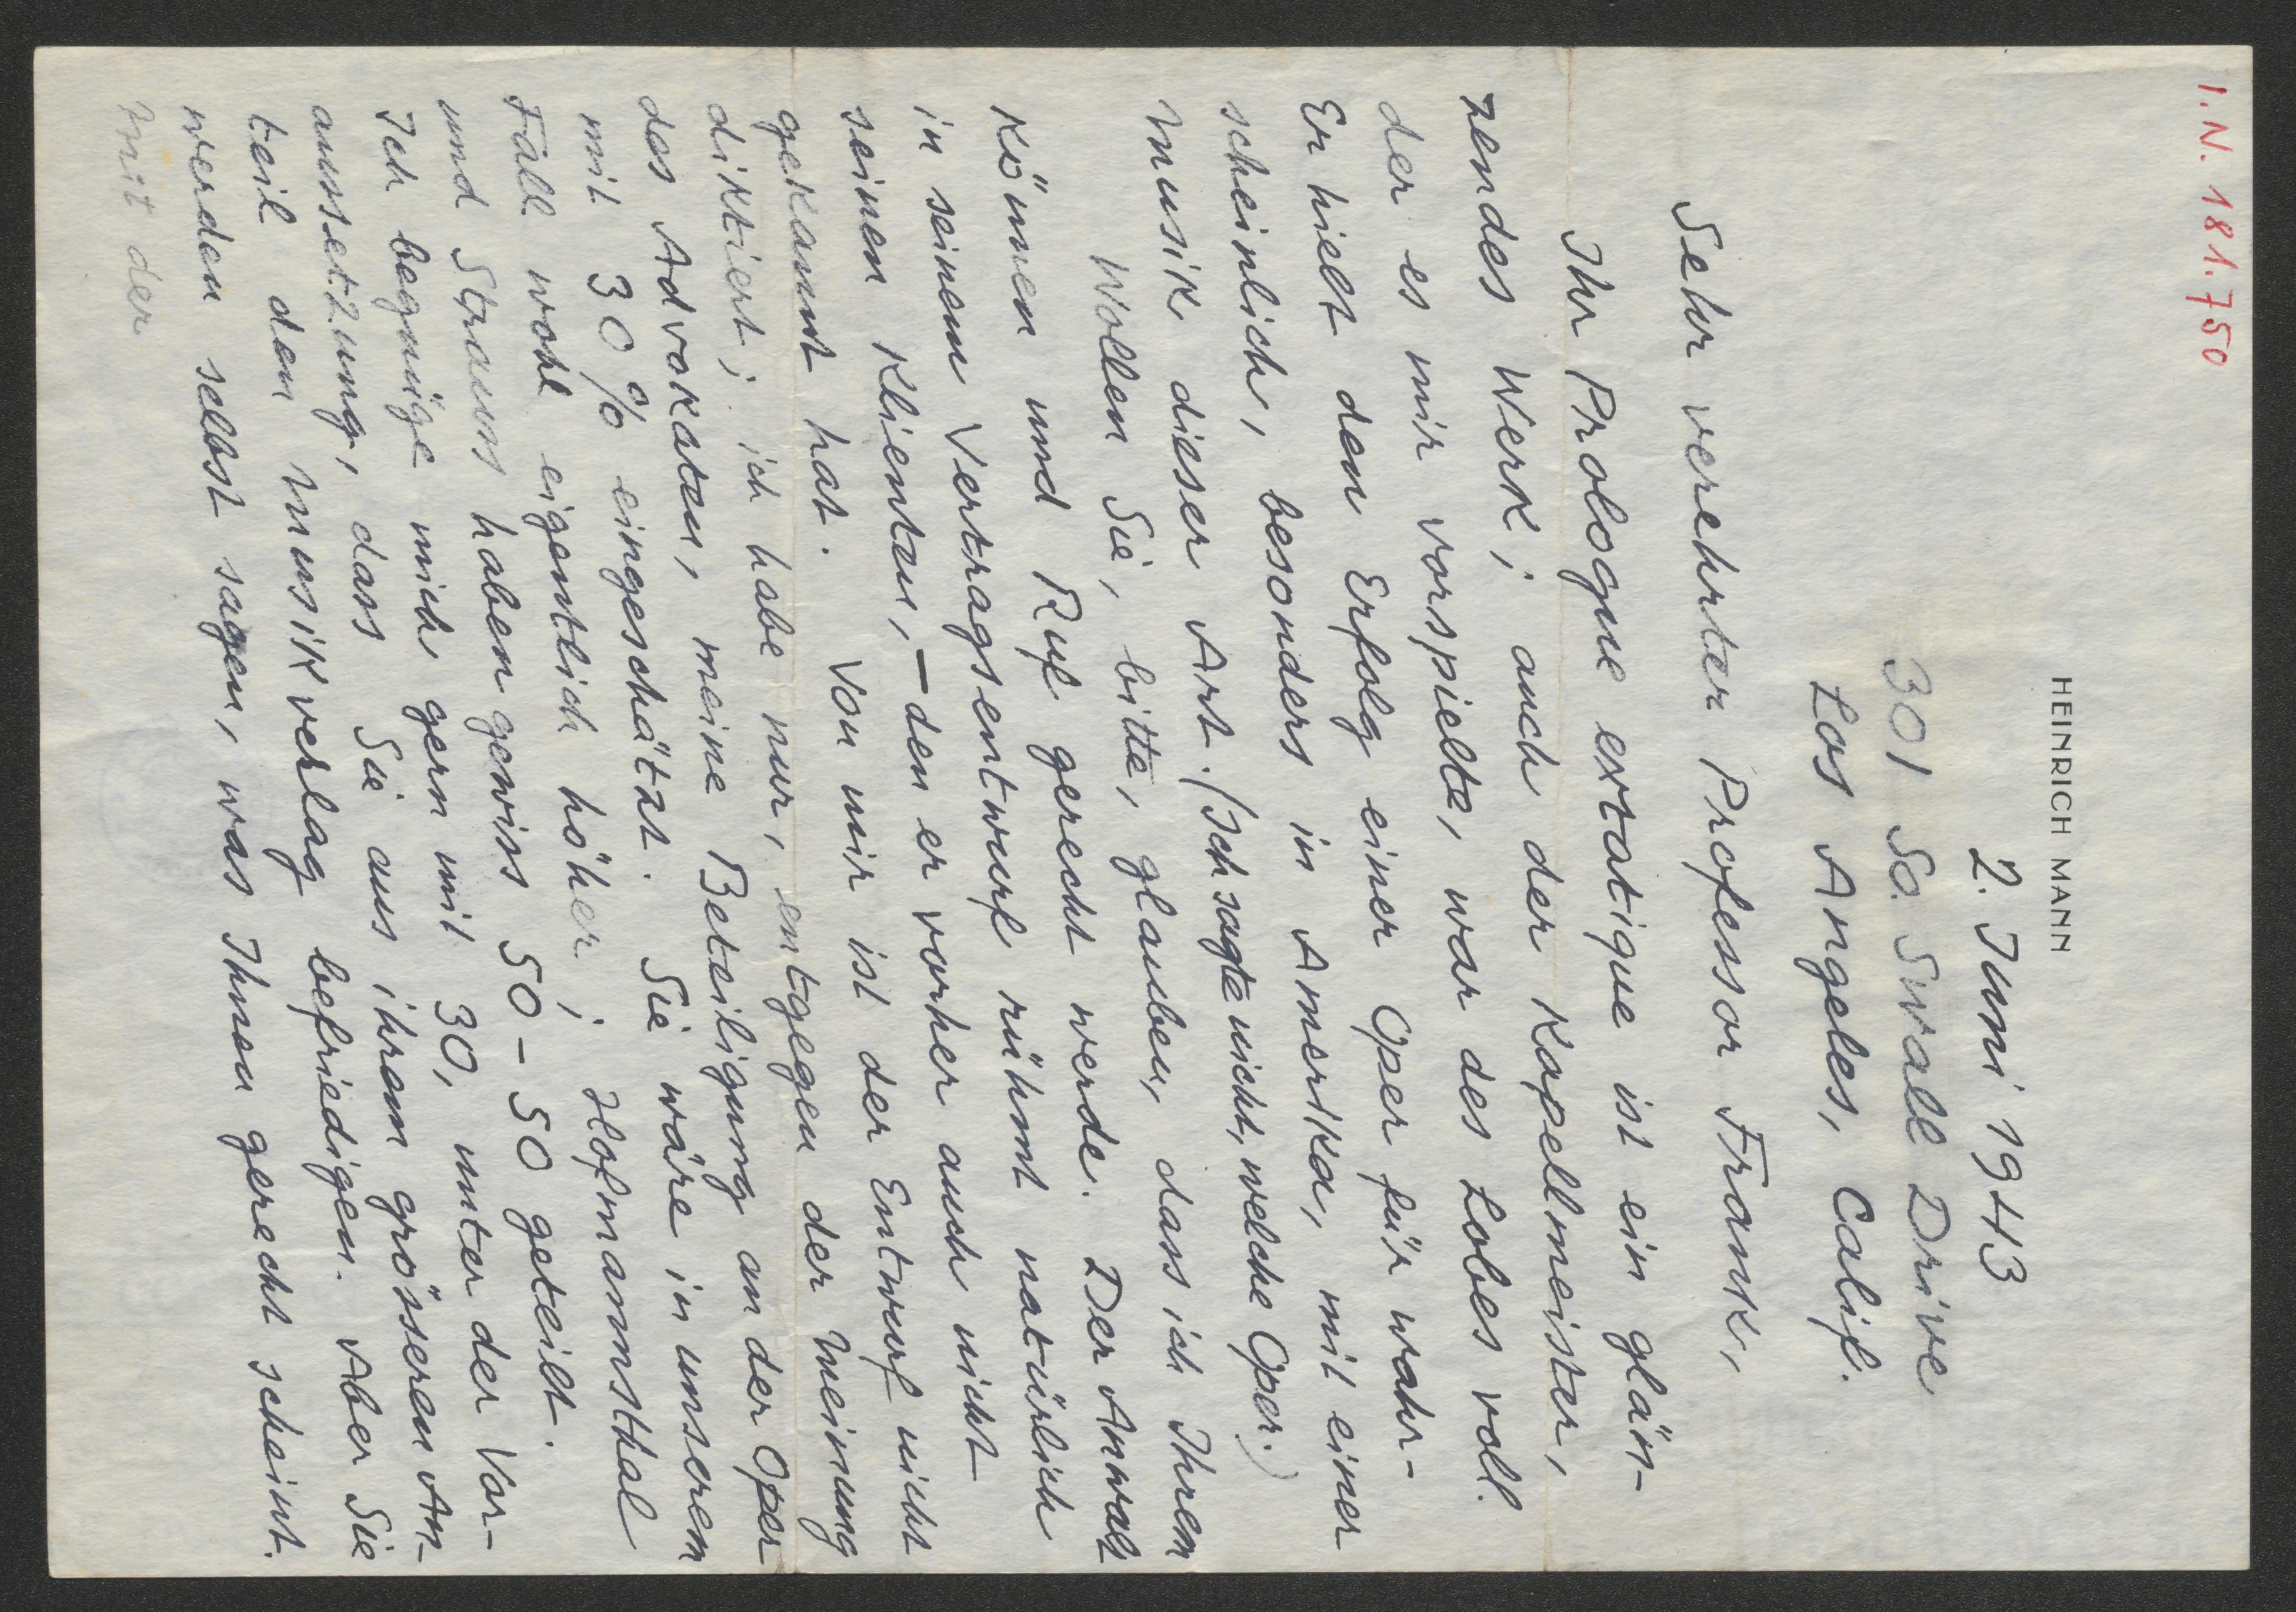 I.N. 181.750
HEINRICH MANN
2. Juni 1943
301 So. Swall Drive
Los Angeles, Calif.
Sehr verehrter Professor Frank,
Ihr Prologue extatique ist ein glän-
zendes Werk; auch der Kapellmeister,
der es mir vorspielte, war des Lobes voll.
Er hielt den Erfolg einer Oper für wahr-
scheinlich, besonders in Amerika, mit einer
Musik dieser Art. (Ich sagte nicht, welche Oper.)
Wollen Sie, bitte, glauben, dass ich Ihrem
Können und Ruf gerecht werde. Der Anwalt
in seinem Vertragsentwurf rühmt natürlich
seinen Klienten, – den er vorher auch nicht
gekannt hat. Von mir ist der Entwurf nicht
diktiert; ich habe nur, entgegen der Meinung
des Advokaten, meine Beteiligung an der Oper
mit 30% eingeschätzt. Sie wäre in unserem
Fall wohl eigentlich höher; Hofmannsthal
und Strauss haben gewiss 50–50 geteilt.
Ich begnüge mich gern mit 30, unter der Vor-
aussetzung, dass Sie aus ihrem grösseren An-
teil den Musikverlag befriedigen. Aber Sie
werden selbst sagen, was Ihnen gerecht scheint.
Mit der